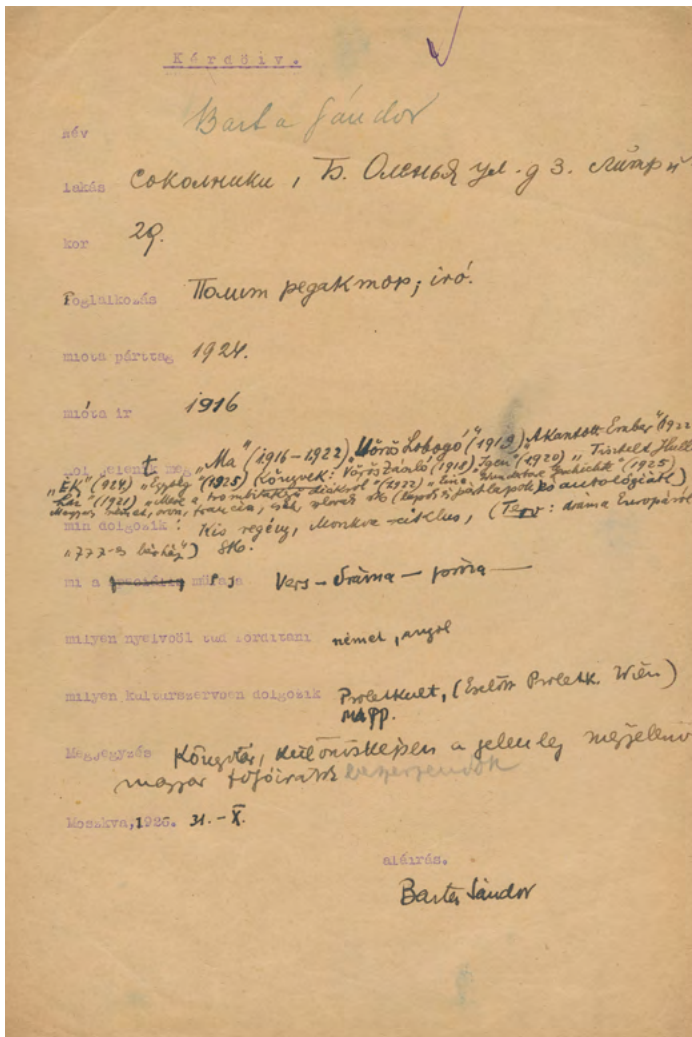 Kérdőiv.
név Barta Sándor
lakás Сокольники, Б. Оленья ул. д 3.
kor 29.
Foglalkozás Полит редактор; iró.
mióta párttag 1924.
mióta ir 1916
hol jelent meg „Ma" (1916–1922) „Vörös Lobogó" (1919) „Akasztott Ember" 1922
„Ék" (924) „Egység" (1925) Könyvek: Vörös Zászló (1918) Igen" (1920) „Tisztelt Hulla
ház" (1921) „Mese a trombitakezű diákról" (1922) (1925)
Magyar német, orosz, francia, cseh, stb és antologiák)
min dolgozik: Kis regény, Moszkva-ciklus, (Terv: dráma Európáról
„777-es bérház") stb.
mi a müfaja Vers – dráma – próza —
milyen nyelvből tud forditani német, angol
milyen kulturszervben dolgozik Proletkult, (Ezelőtt Proletk. Wien)
МАПП.
Megjegyzés Könyvtár, különösképen a jelenleg megjelenő
magyar folyóiratok beszerzendők
Moszkva, 1926. 31. – X.
aláirás.
Barta Sándor